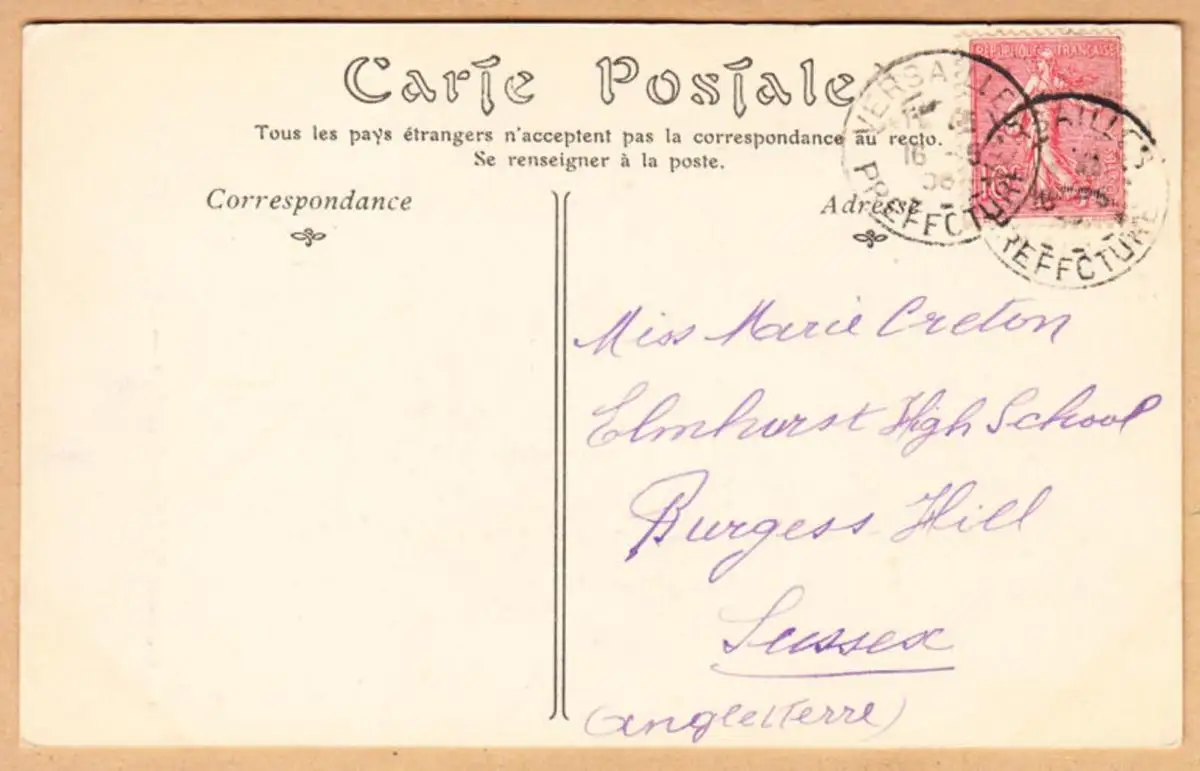 Carte Postale
RÉPUBLIQUE FRANÇAISE
Tous les pays étrangers n'acceptent pas la correspondance au recto.
Se renseigner à la poste.
VERSAILLES
16
PREFFCTURE
PREFFCTURE
Correspondance
Adresse
Miss Marie Creton
Elmhurst High School
Burgess Hill
Sussex
(Angleterre)